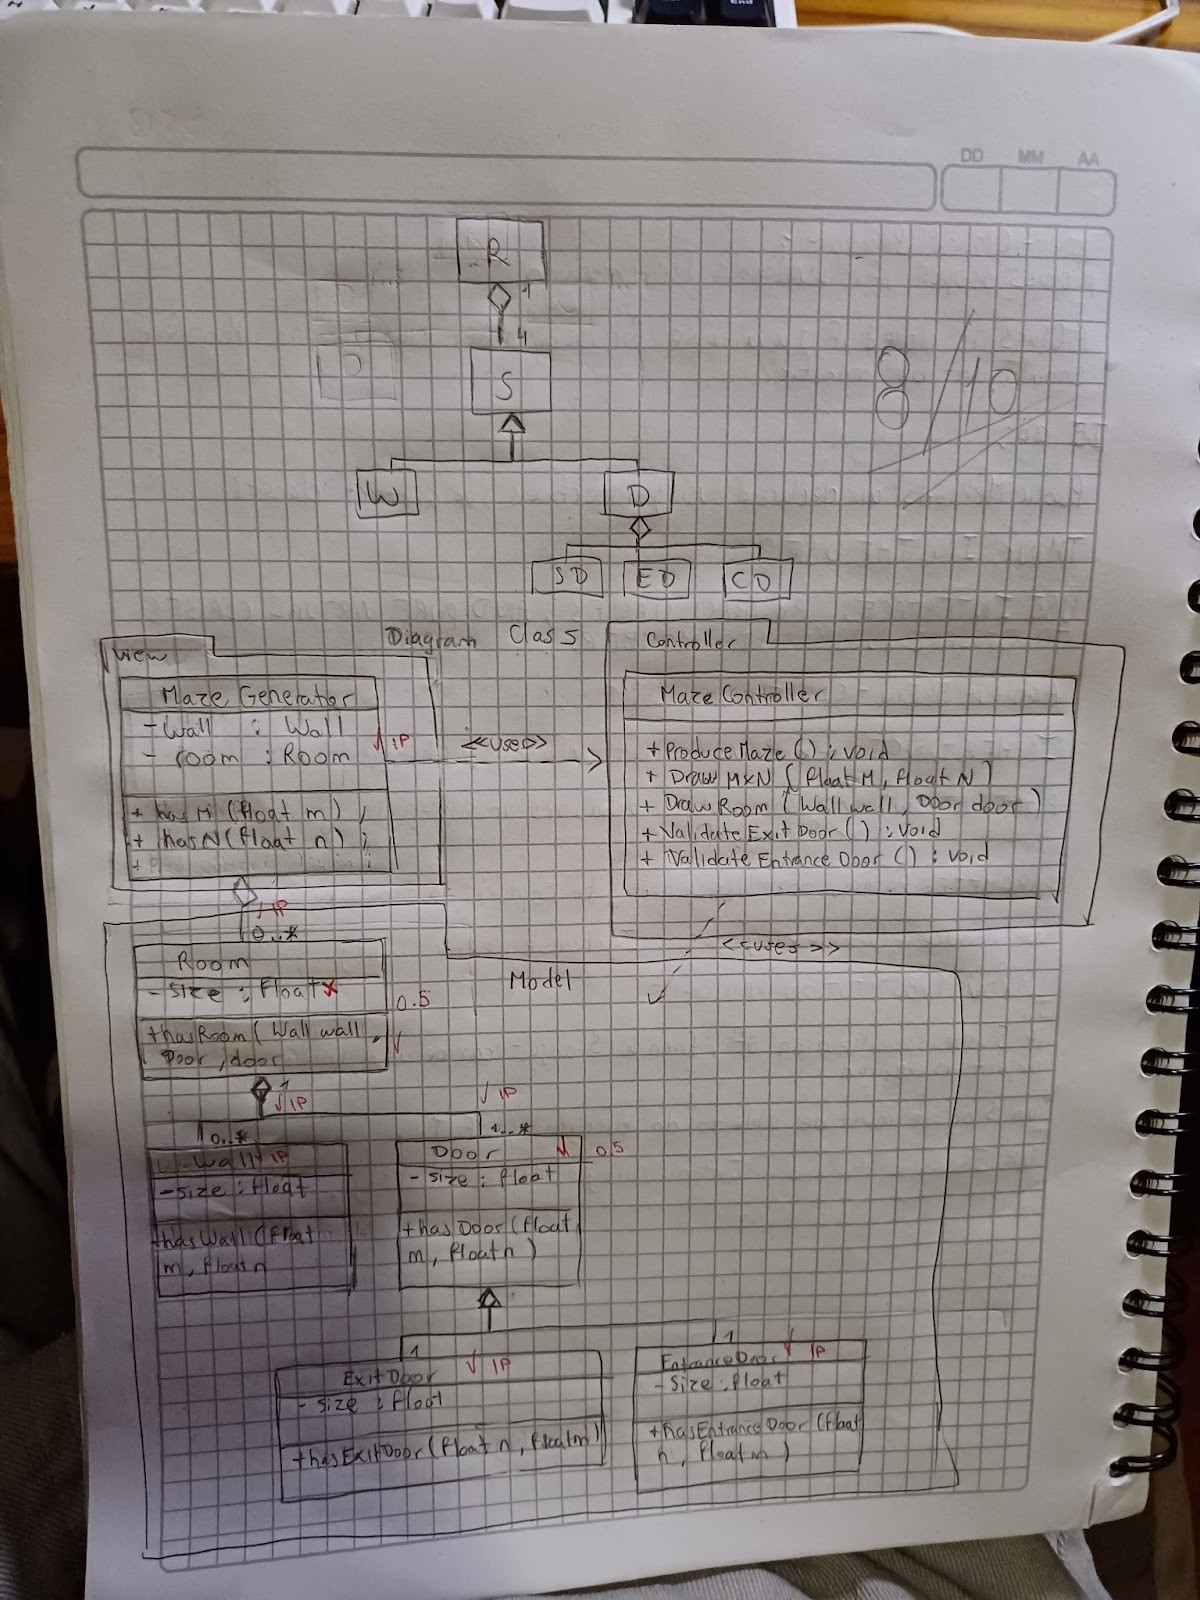 DD MM AA
R
1
4
S
8/10
W
D
SD
ED
CD
Diagram Class
View
Controller
Maze Generator
- Wall : Wall
- room : Room
1P
<<uses>>
Maze Controller
+ ProduceMaze () : void
+ DrawMxN (float M, float N)
+ DrawRoom (Wall wall, Door door)
+ ValidateExitDoor () : void
+ ValidateEntranceDoor () : void
+ hasM (float m) ;
+ hasN (float n) ;
+
1P
0..*
<<uses>>
Model
Room
- size : float
0.5
+ hasRoom (Wall wall,
Door ,door
1
1P
1P
0..*
1..*
Wall 1P
- size : float
+hasWall (float
m, float n
Door
0.5
- size : float
+ hasDoor (float
m, float n)
1
1
ExitDoor
1P
- size : float
+hasExitDoor (float n, float m)
EntranceDoor
1P
- Size : float
+hasEntranceDoor (float
n, float m)